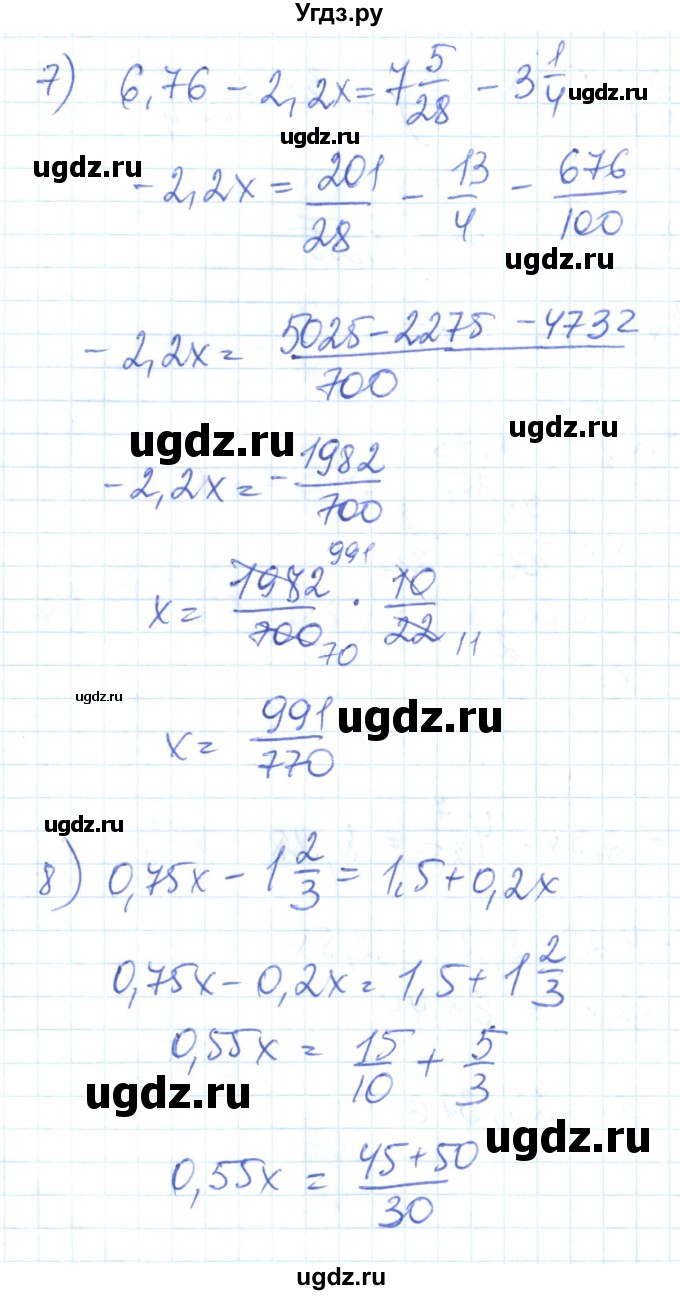 Угдз.ру
7) 6,76 - 2,2x = 7 5/28 - 3 1/4
ugdz.ru
ugdz.ru
ugdz.ru
-2,2x = 201/28 - 13/4 - 676/100
ugdz.ru
-2,2x = (5025 - 2275 - 4732)/700
ugdz.ru
ugdz.ru
-2,2x = - 1982/700
991
x = 1982/700 · 10/22
70 11
ugdz.ru
x = 991/770
ugdz.ru
ugdz.ru
8) 0,75x - 1 2/3 = 1,5 + 0,2x
0,75x - 0,2x = 1,5 + 1 2/3
0,55x = 15/10 + 5/3
ugdz.ru
ugdz.ru
0,55x = (45 + 50)/30
ugdz.ru